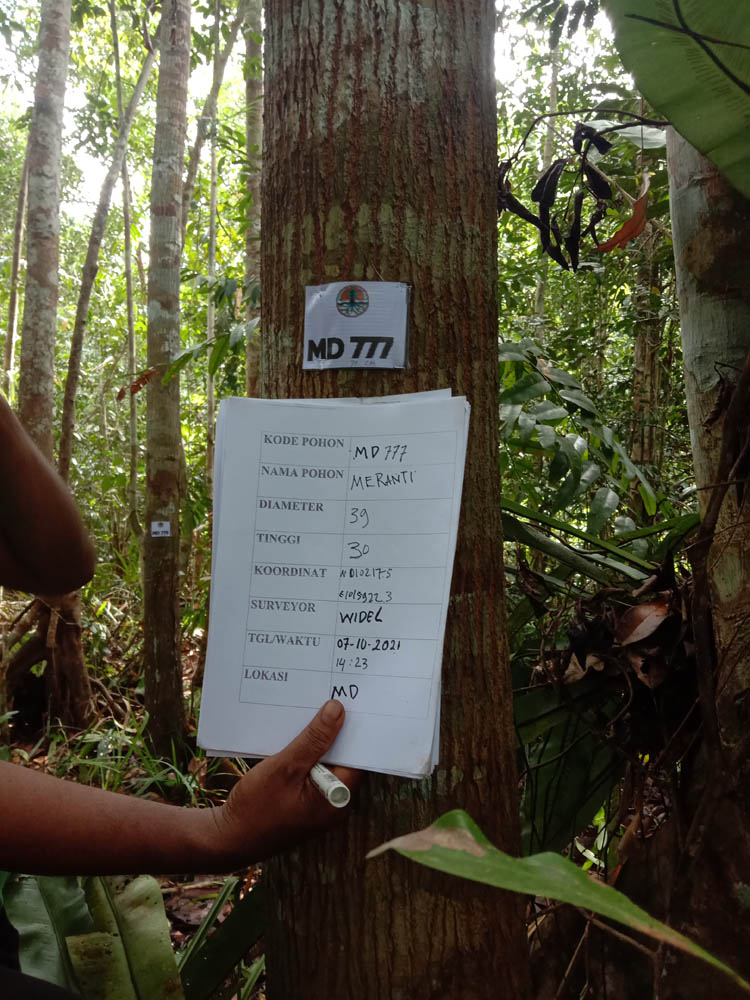 MD 777
KODE POHON MD 777
NAMA POHON MERANTI
DIAMETER 39
TINGGI 30
KOORDINAT N0102175
SURVEYOR WIDEL
TGL/WAKTU 07-10-2021
14:23
LOKASI MD